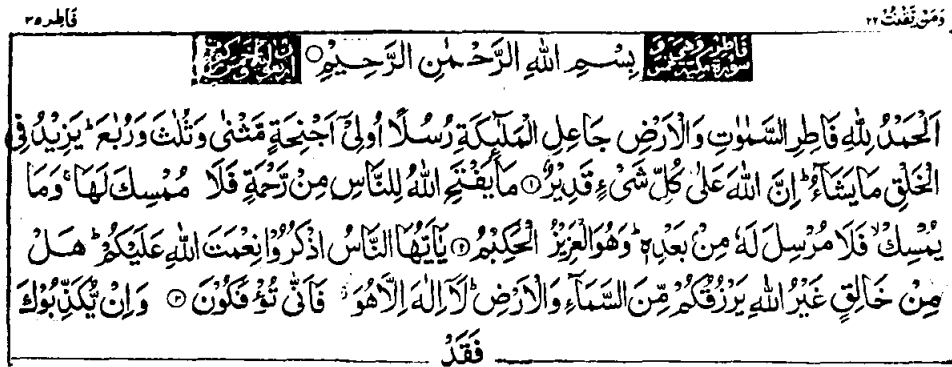 ومن يقنت ٢٢
فاطر ٣٥
بِسْمِ اللهِ الرَّحْمٰنِ الرَّحِيْمِ
اَلْحَمْدُ لِلّٰهِ فَاطِرِ السَّمٰوٰتِ وَالْاَرْضِ جَاعِلِ الْمَلٰٓئِكَةِ رُسُلًا اُولِيْٓ اَجْنِحَةٍ مَّثْنٰى وَثُلٰثَ وَرُبٰعَ ؕ يَزِيْدُ فِى
الْخَلْقِ مَا يَشَآءُ ؕ اِنَّ اللهَ عَلٰى كُلِّ شَىْءٍ قَدِيْرٌ ۝۱ مَا يَفْتَحِ اللهُ لِلنَّاسِ مِنْ رَّحْمَةٍ فَلَا مُمْسِكَ لَهَا ۚ وَمَا
يُمْسِكْ ۙ فَلَا مُرْسِلَ لَهٗ مِنْۢ بَعْدِهٖ ؕ وَهُوَ الْعَزِيْزُ الْحَكِيْمُ ۝۲ يٰٓاَيُّهَا النَّاسُ اذْكُرُوْا نِعْمَتَ اللهِ عَلَيْكُمْ ؕ هَلْ
مِنْ خَالِقٍ غَيْرُ اللهِ يَرْزُقُكُمْ مِّنَ السَّمَآءِ وَالْاَرْضِ ؕ لَآ اِلٰهَ اِلَّا هُوَ ۖ فَاَنّٰى تُؤْفَكُوْنَ ۝۳ وَاِنْ يُّكَذِّبُوْكَ
فَقَدْ